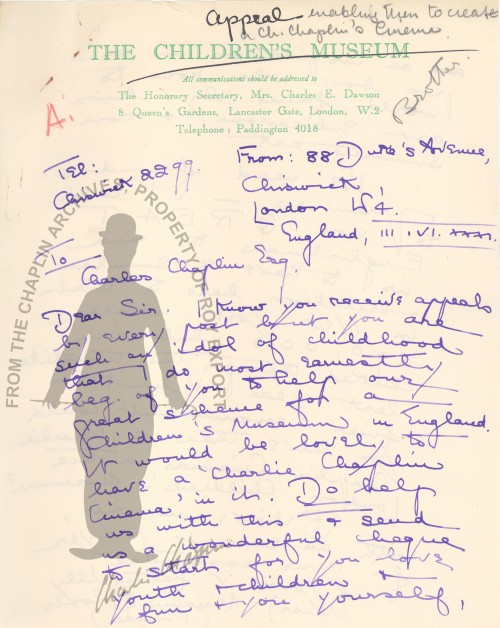 Appeal enabling them to create
a Ch. Chaplin's Cinema
THE CHILDREN'S MUSEUM
Brother.
All communications should be addressed to
The Honorary Secretary, Mrs. Charles E. Dawson
8 Queen's Gardens, Lancaster Gate, London, W.2
Telephone: Paddington 4018
A.
Tel:
Chiswick 2299.
From: 88 Duke's Avenue,
Chiswick,
London W4.
England, III.VI.
To
Charles Chaplin Esq.
Dear Sir. I know you receive appeals
by every post but you are
such an idol of childhood
that I do most earnestly
beg of you to help our
great scheme for a
Children's Museum in England.
It would be lovely to
have a 'Charlie Chaplin
Cinema' in it. Do help
us with this & send
us a wonderful cheque
to start for you love
youth & children &
fun & you yourself,
FROM THE CHAPLIN ARCHIVES, PROPERTY OF ROY EXPORT
Charlie Chaplin